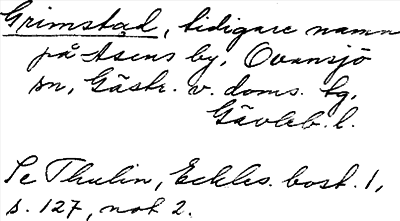 Grimstad, tidigare namn
på Åsens by, Ovansjö
sn, Gästr. v. doms. hg,
Gävleb. l.
Se Thulin, Eckles. bost. 1,
s. 127, not 2.